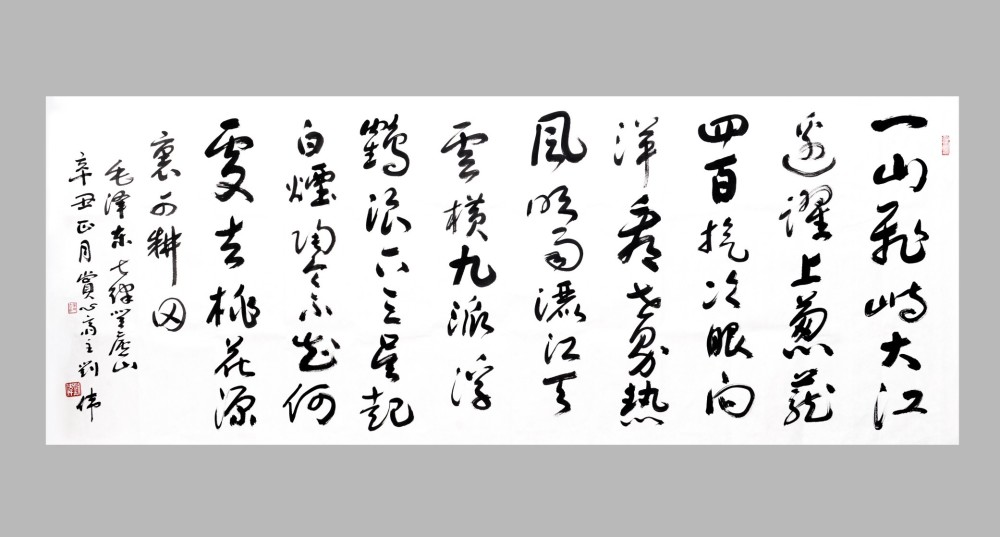 一山飛峙大江
邊躍上蔥蘢
四百旋冷眼向
洋看世界熱
風吹雨灑江天
雲橫九派浮
鶴浪下三吳起
白煙陶令不知何
處去桃花源
裏可耕田
毛澤東七律登廬山
辛丑正月賞心齋主劉偉